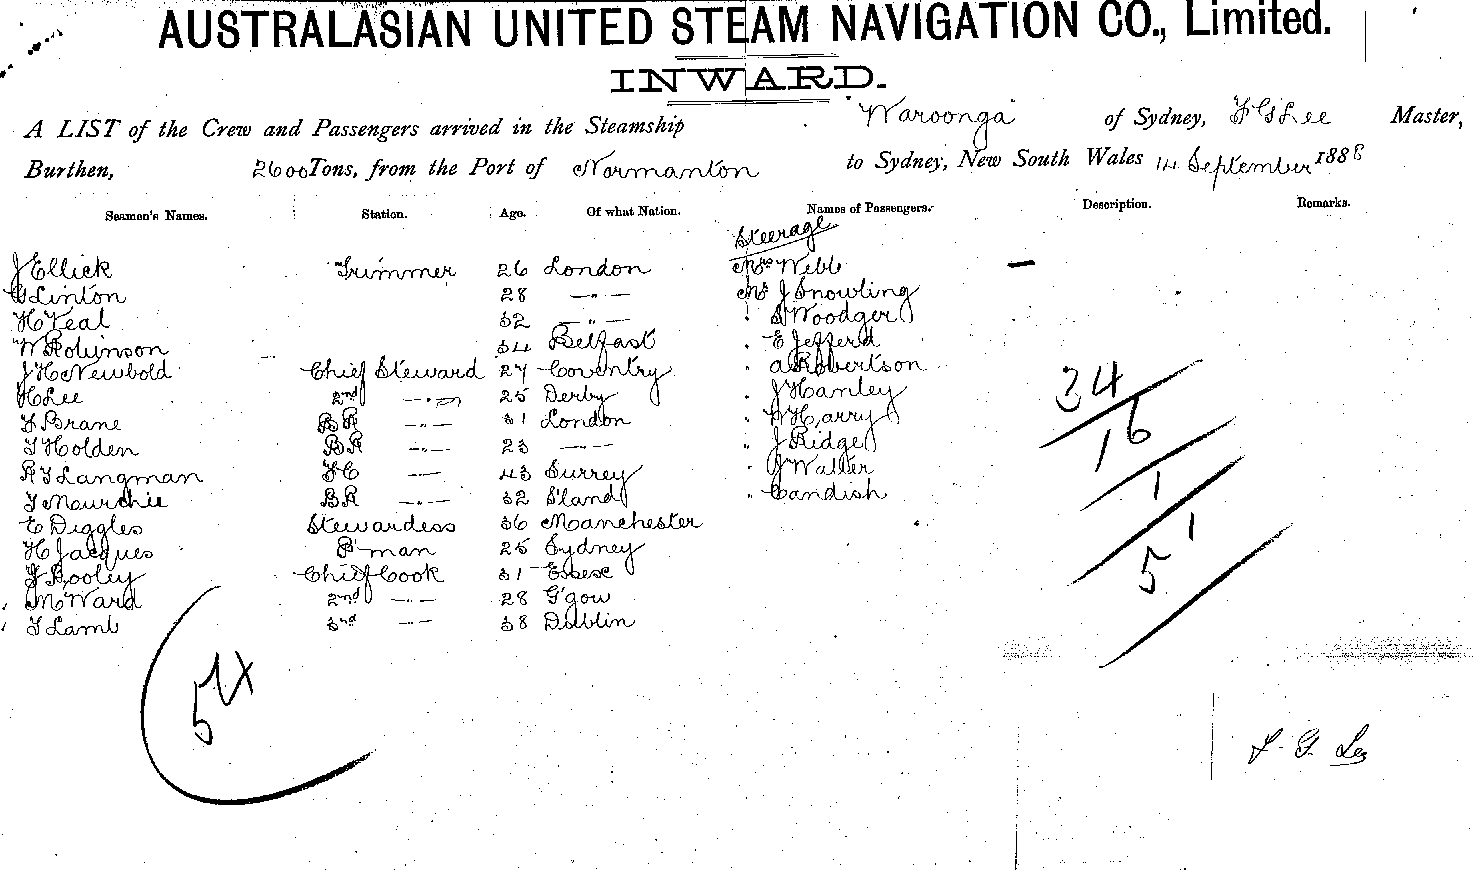 AUSTRALASIAN UNITED STEAM NAVIGATION CO., Limited.
INWARD.
A LIST of the Crew and Passengers arrived in the Steamship "Waroonga" of Sydney, F G Lee Master,
Burthen, 2600 Tons, from the Port of Normanton to Sydney, New South Wales 14 September 1888
Seamen's Names. Station. Age. Of what Nation. Names of Passengers. Description. Remarks.
Steerage
J Ellick Trimmer 26 London Mrs Webb —
G Linton 28 —"— Mr J Snowling
H Veal 32 —"— S Woodger
W Robinson 34 Belfast E Jefferd
J H Newbold Chief Steward 27 Coventry A Robertson
H Lee 2nd —"— 25 Derby J Hanley
F Brane BR —"— 31 London W Harry
T Holden BR —"— 23 —"— J Ridge
R T Langman FC — 43 Surrey J Waller
T Mourchie BR —"— 32 S'land Candish
E Diggles Stewardess 36 Manchester
H Jacques P'man 25 Sydney
F Booley Chief Cook 31 Essex
M Ward 2nd —"— 28 G'gow
T Lamb 3rd —"— 38 Dublin
34
16
1
1
5
54
F. G. Lee